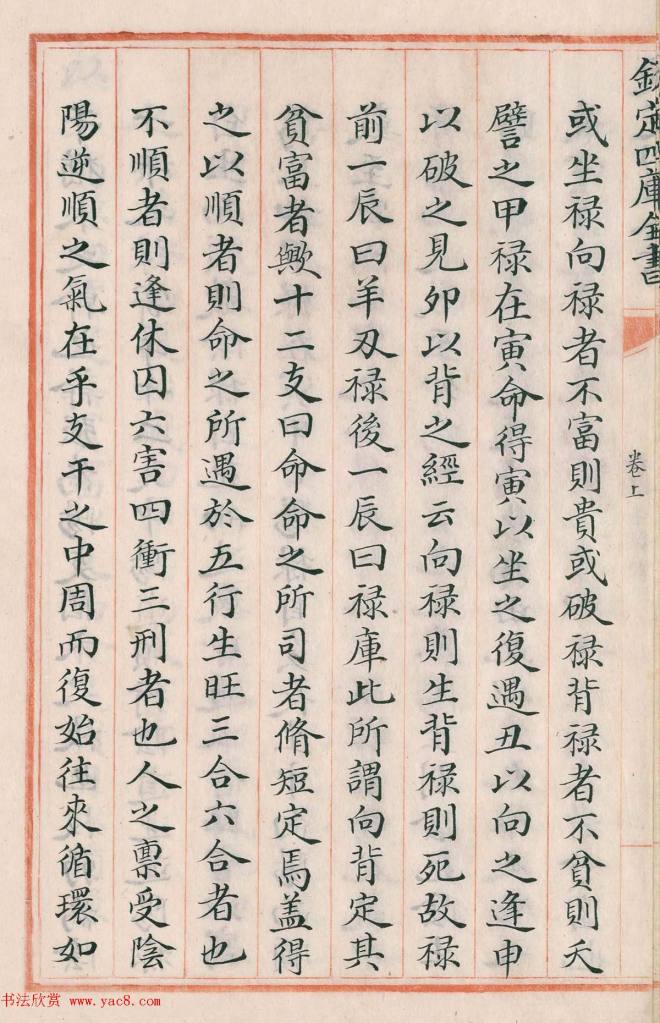 欽定四庫全書
卷上
或坐禄向禄者不富則貴或破禄背禄者不貧則夭
譬之甲禄在寅命得寅以坐之復遇丑以向之逢申
以破之見夘以背之經云向禄則生背禄則死故禄
前一辰曰羊刄禄後一辰曰禄庫此所謂向背定其
貧富者歟十二支曰命命之所司者脩短定焉盖得
之以順者則命之所遇於五行生旺三合六合者也
不順者則逢休囚六害四衝三刑者也人之禀受陰
陽逆順之氣在乎支干之中周而復始往來循環如
书法欣赏 www.yac8.com